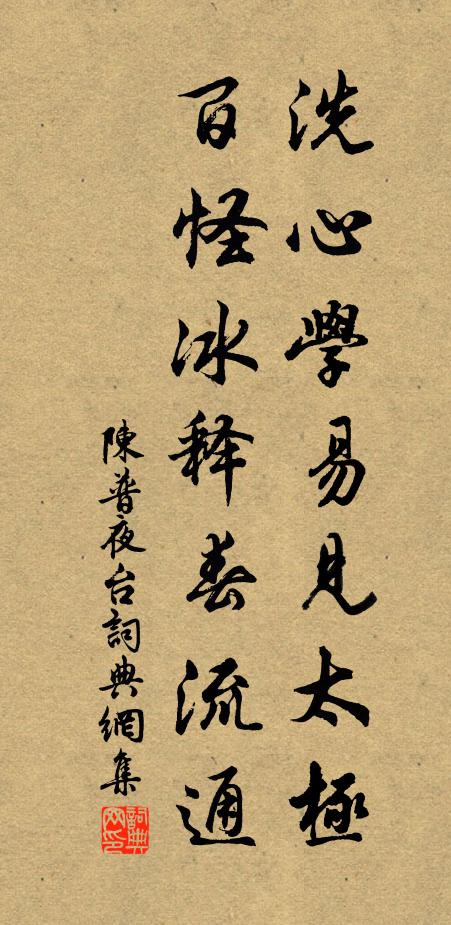 洗心學易見太極
百怪冰释春流通
陳普夜台詞典網集
詞典网印